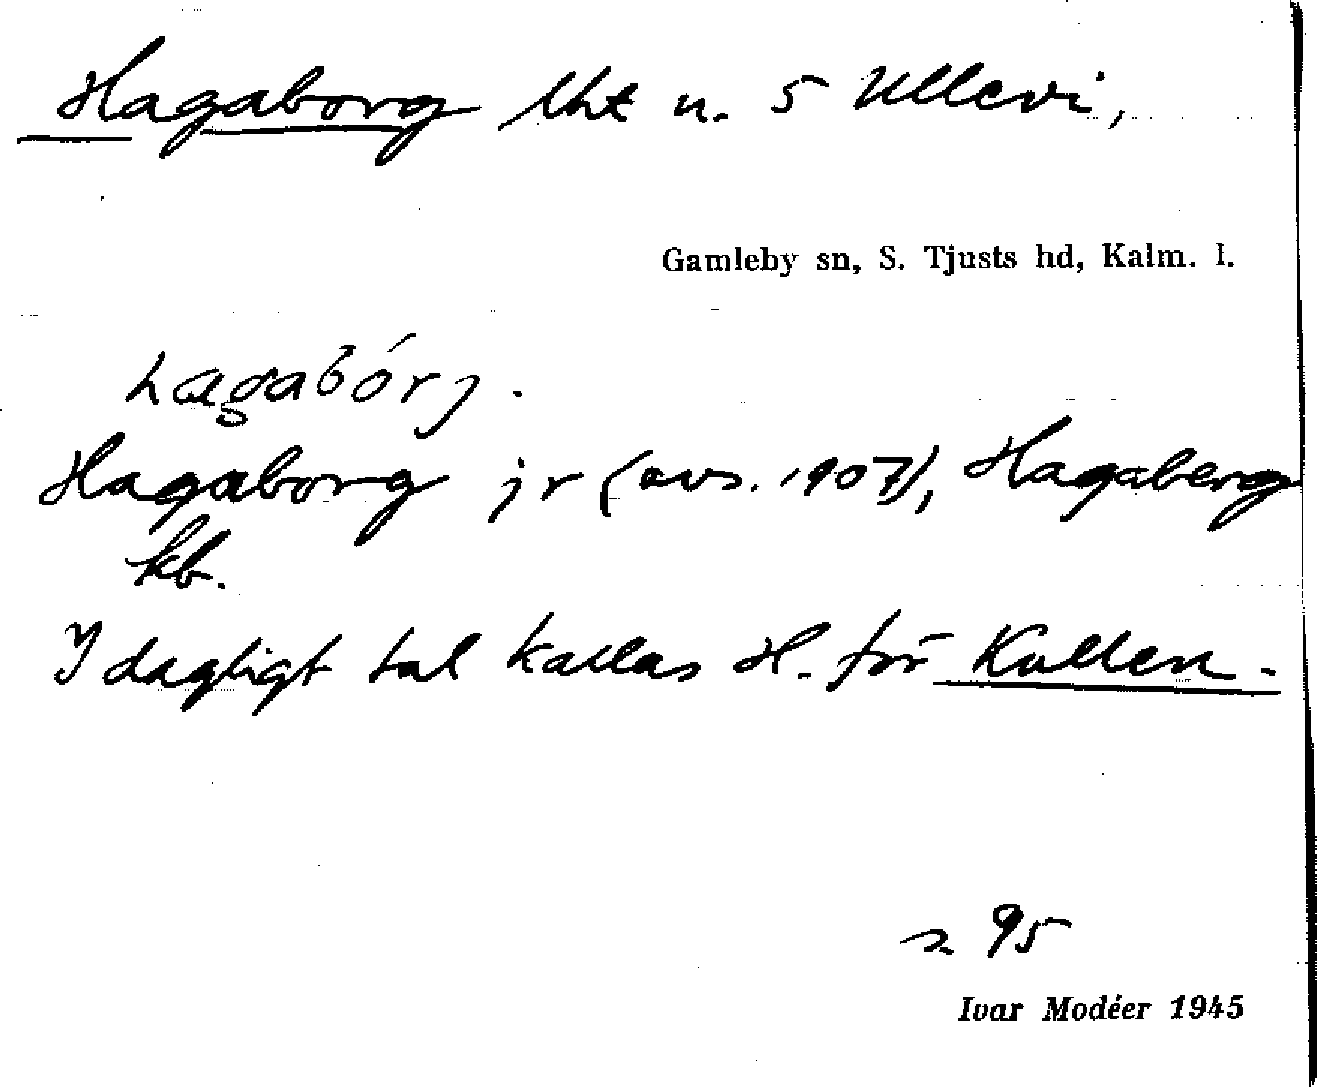 Hagaborg lht u. 5 Ullevi,
Gamleby sn, S. Tjusts hd, Kalm. l.
hagabórj.
Hagaborg jr (avs. 1907), Hagaberg
kb.
I dagligt tal kallas H. för Kullen.
95
Ivar Modéer 1945